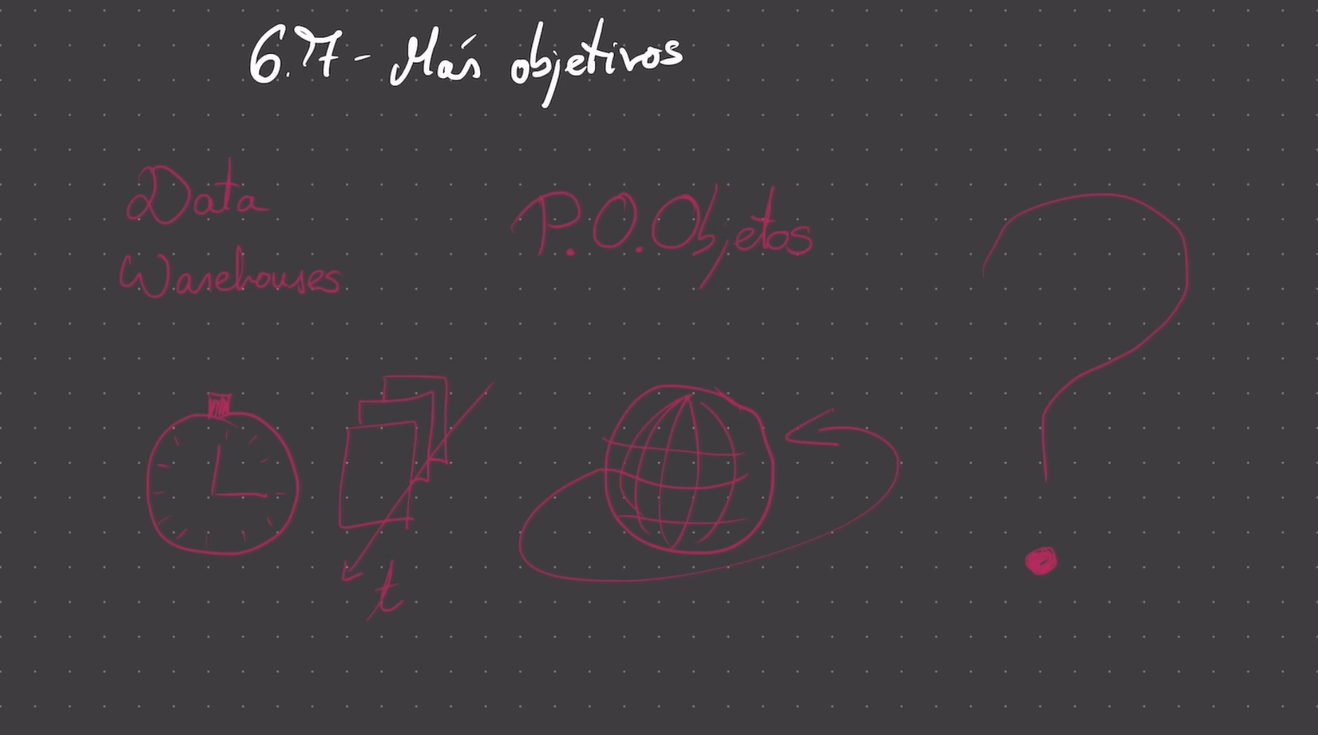 6.7 - Más objetivos
Data
Warehouses
P.O.Objetos
t
?